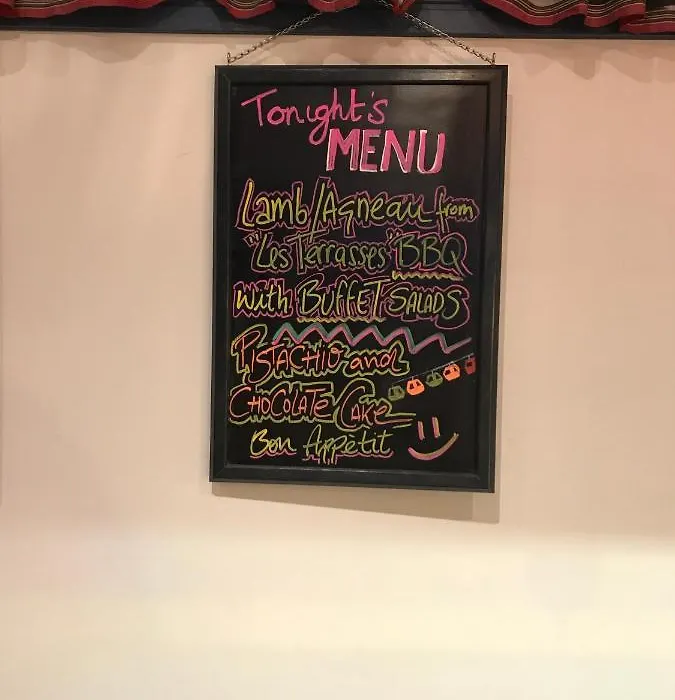 Tonight's
MENU
Lamb/Agneau from
"Les Terrasses" BBQ
with BUFFET SALADS
PISTACHIO and
CHOCOLATE CAKE
Bon Appètit